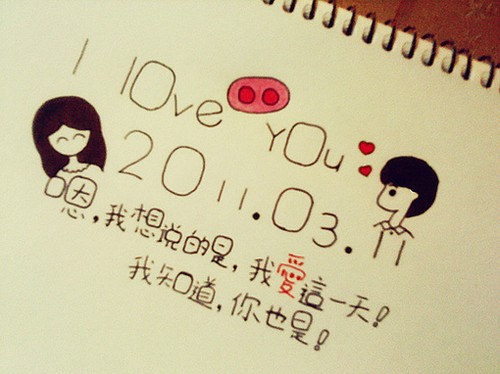 I love You
2011.03.11
嗯,我想说的是,我愛這一天!
我知道,你也是!